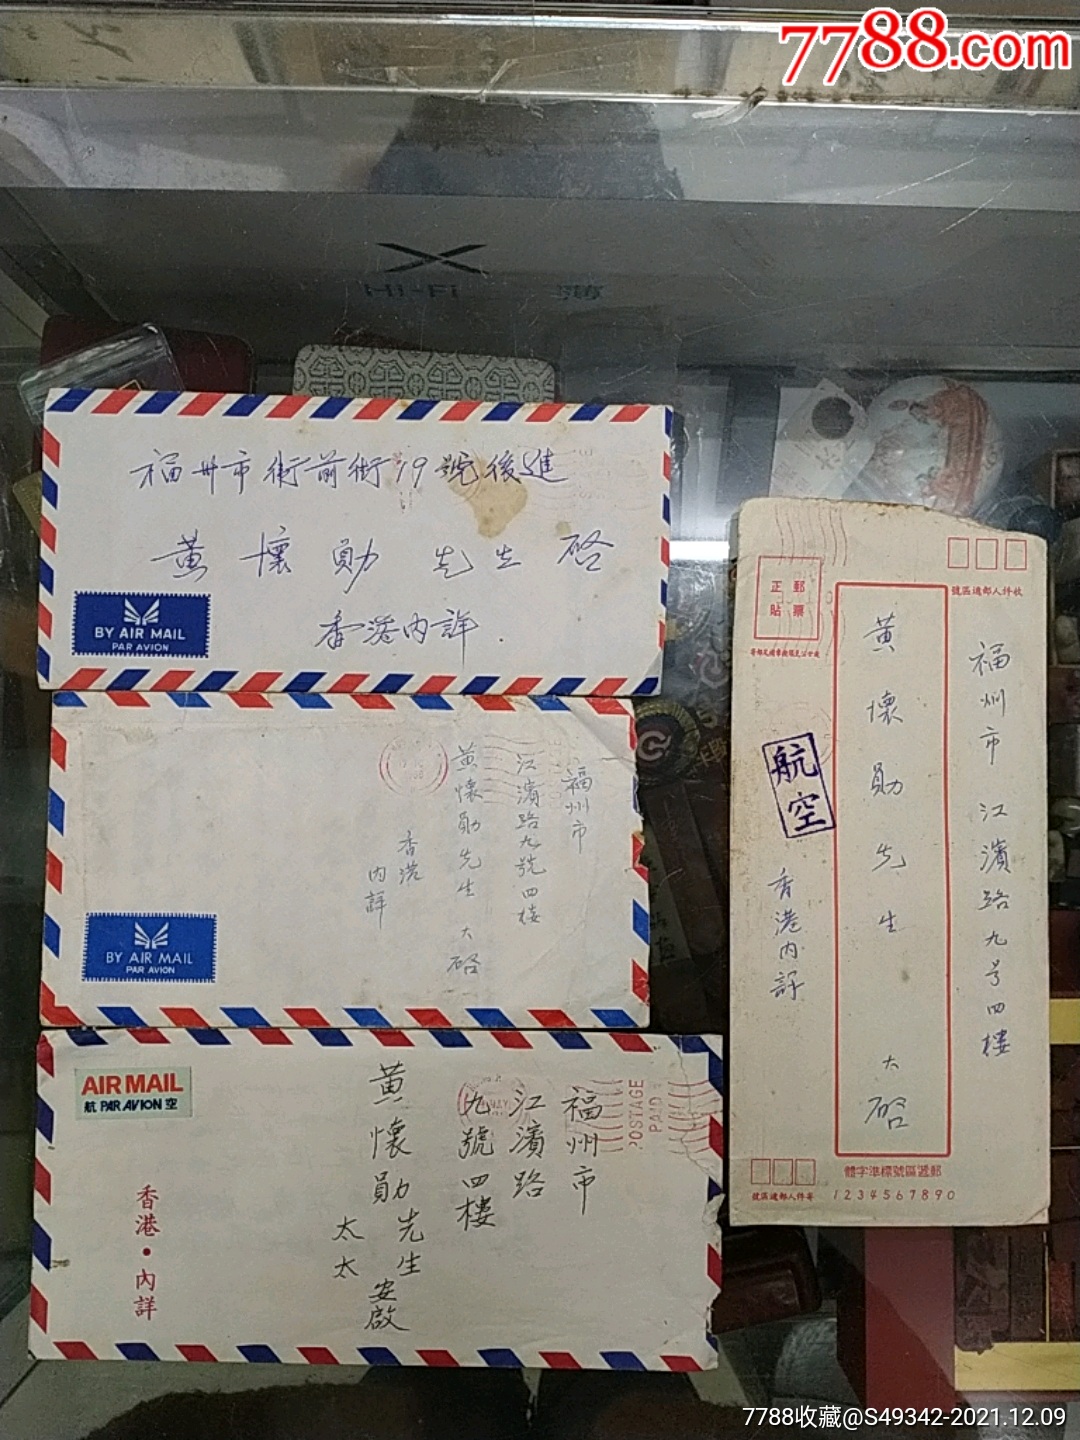 7788.com
Hi-Fi
福州市衛前街19號後進
黃懷勛先生啓
香港內詳.
BY AIR MAIL
PAR AVION
福州市
江濱路九號四樓
黃懷勛先生 大啓
香港
內詳
BY AIR MAIL
PAR AVION
AIR MAIL
航 PAR AVION 空
福州市
江濱路
九號四樓
黃懷勛先生
太太
安啟
香港·內詳
POSTAGE
PAID
收件人郵遞區號
正貼
郵票
福州市江濱路九号四樓
黃懷勛先生 大啓
航空
香港內詳
郵遞區號標準字體
1234567890
寄件人郵遞區號
7788收藏@S49342-2021.12.09